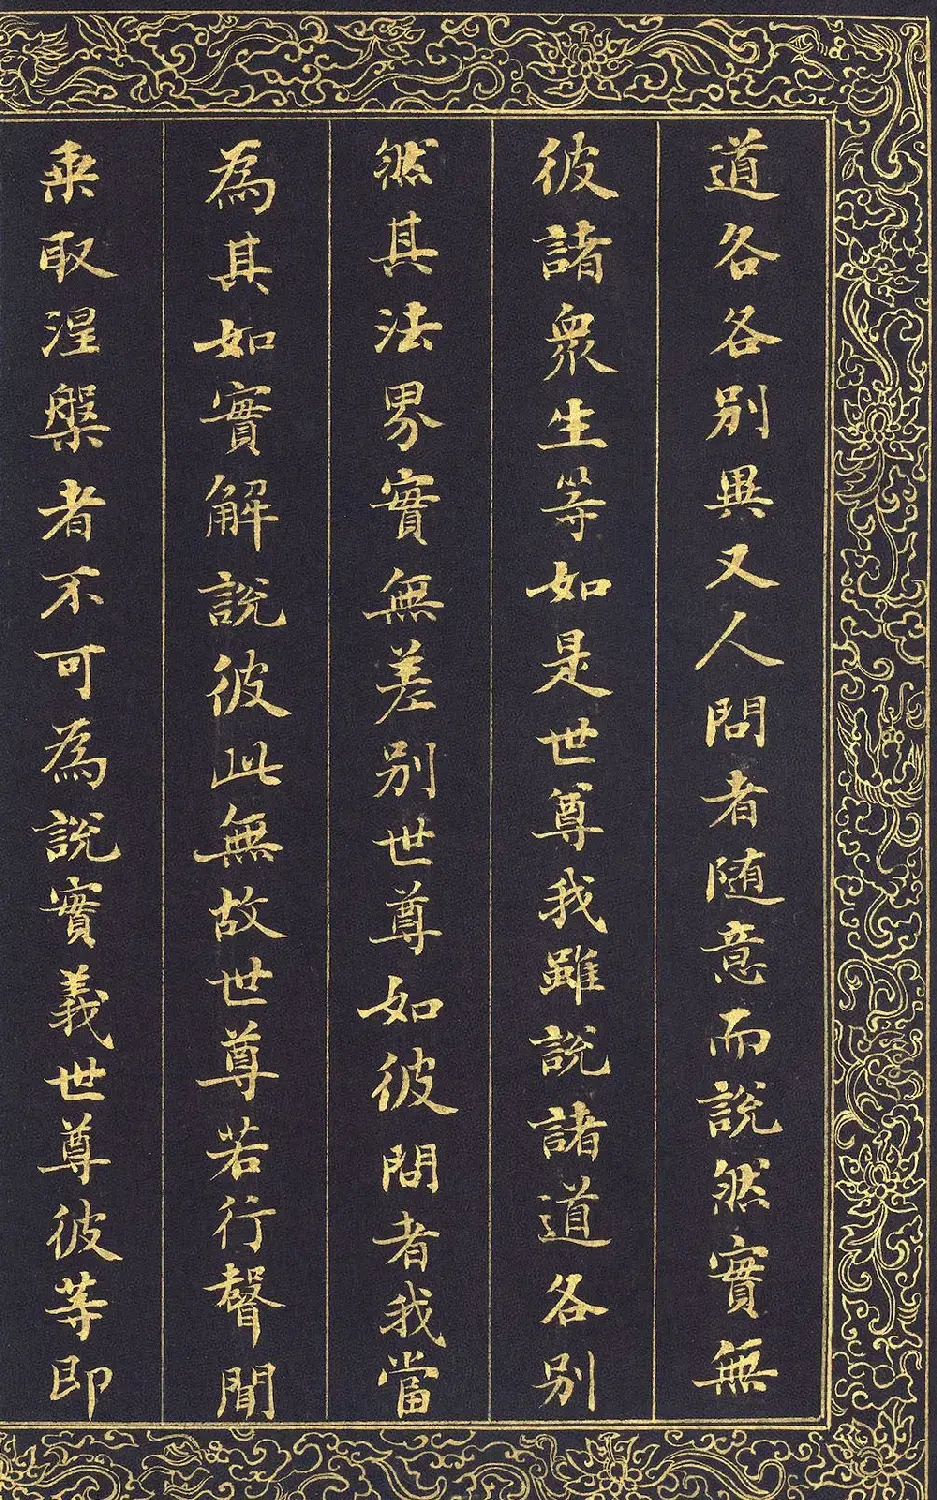 道各各別異又人問者随意而説然實無
彼諸衆生等如是世尊我雖説諸道各別
然其法界實無差別世尊如彼問者我當
為其如實解説彼此無故世尊若行聲聞
乗取涅槃者不可為説實義世尊彼等即